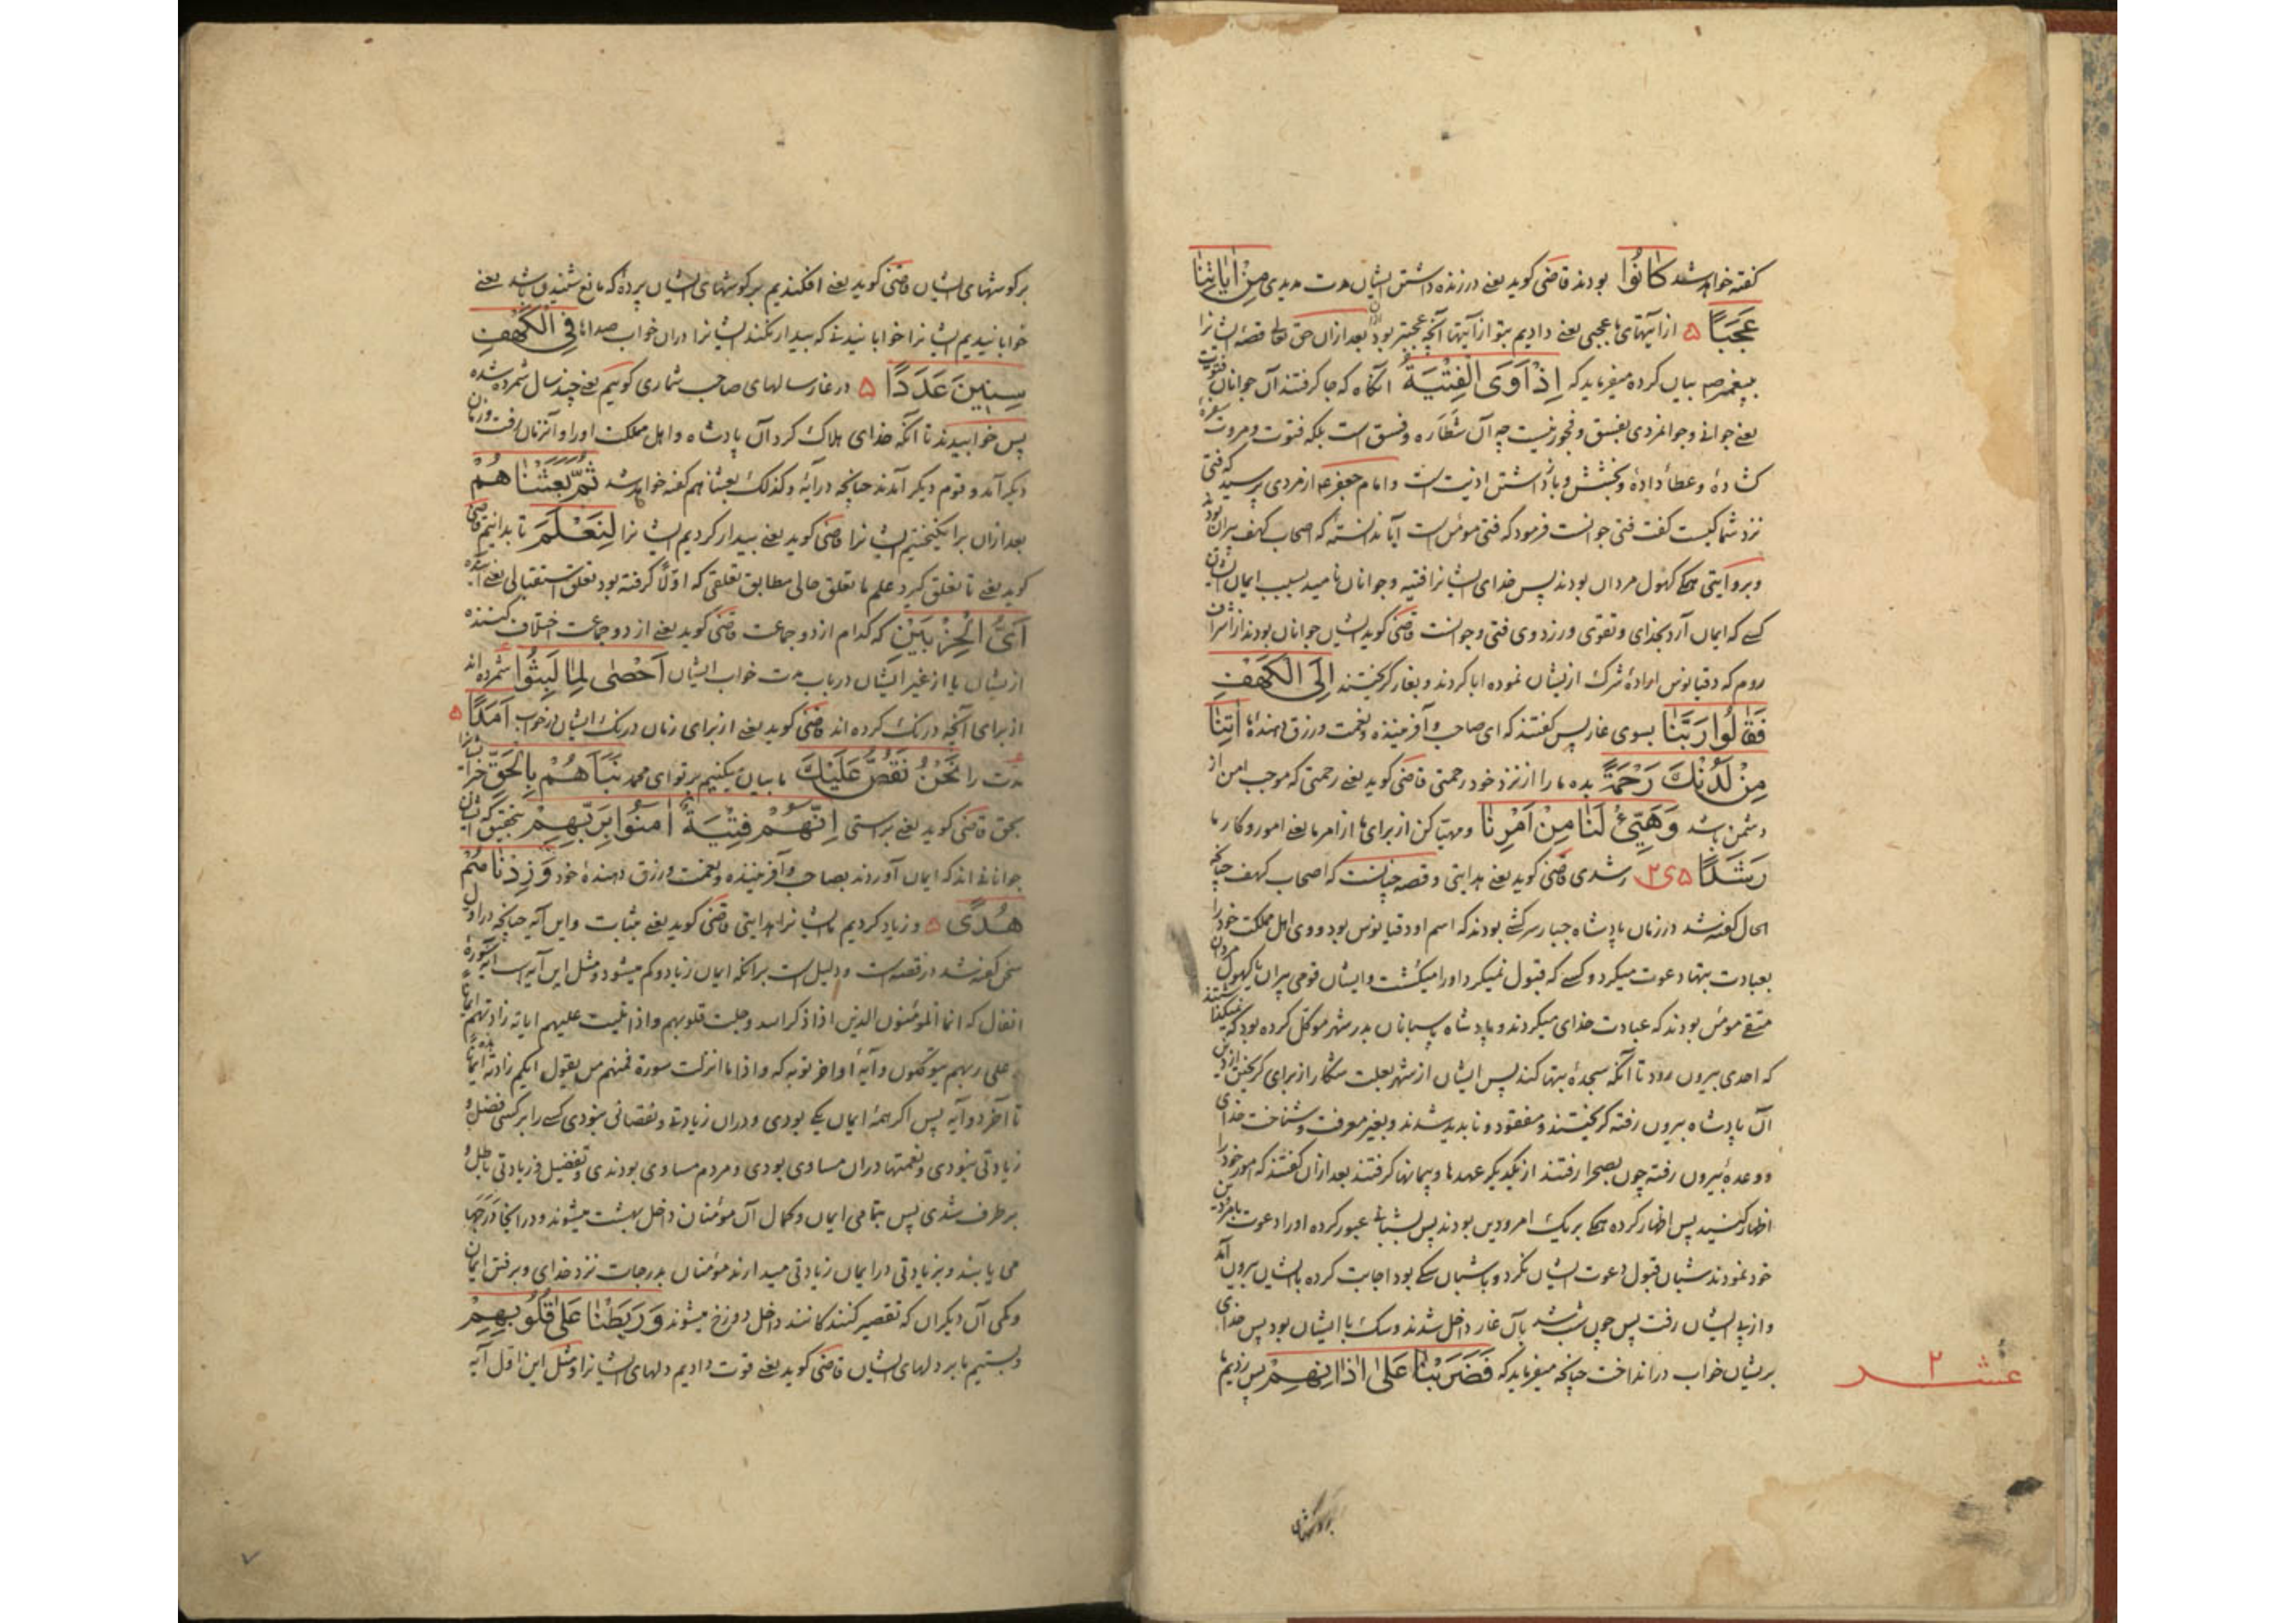 گفته خواهد شد كَانُوا بودند قاضی گوید یعنے در زنده داشتن ایشان مدت مدیدی مِنْ اٰيَاتِنَا
عَجَبًا ۵ از آیتهای ما عجبی یعنے دادیم بتو از آیتها آنچه عجبتر بود بعد ازان حق تعالی قصهٔ ایشانرا
بپیغمبر صم بیان کرده میفرماید که اِذْ اَوَى الْفِتْيَةُ آنگاه که جا گرفتند آن جوانان
یعنے جوانے و جوانمردی بفسق و فجور نیست چه آن شطاره و فسق است بلکه فتوت و مروت
کشاده و عطا داده و بخشش و باز داشتن اذیت است و امام جعفر ع از مردی پرسید که فتی
نزد شما کیست گفت فتی جوانست فرمود که فتی مؤمن است آیا ندانسته که اصحاب کهف پیران بودند
و بروایتی همگی کهول مردان بودند پس خدای ایشانرا فتیه و جوانان نامید بسبب ایمان ایشان
کسے که ایمان آرد بخدای و تقوی ورزد وی فتی و جوانست قاضی گوید ایشان جوانان بودند از اشراف
روم که دقیانوس ارادهٔ شرک ازیشان نموده ابا کردند و بغار گریختند اِلَى الْكَهْفِ
فَقَالُوا رَبَّنَا بسوی غار پس گفتند که ای صاحب و آفریننده و نعمت و رزق دهندهٔ ما اٰتِنَا
مِنْ لَدُنْكَ رَحْمَةً بده ما را از نزد خود رحمتی قاضی گوید یعنے رحمتی که موجب امن از
دشمن باشد وَهَيِّئْ لَنَا مِنْ اَمْرِنَا و مهیا کن از برای ما از امر ما یعنے امور و کار ما
رَشَدًا ۵ رشدی قاضی گوید یعنے هدایتی و قصه چنانست که اصحاب کهف چنانچه
الحال گفته شد در زمان پادشاه جبار سرکشی بودند که اسم او دقیانوس بود و وی اهل مملکت خود را
بعبادت بتها دعوت میکرد و کسے که قبول نمیکرد او را میکشت و ایشان قومی پیران یا کهول مردان
متقی مؤمن بودند که عبادت خدای میکردند و پادشاه پاسبانان بدر شهر موکل کرده بود که نمیگذاشتند
که احدی بیرون رود تا آنکه سجدهٔ بتها کند پس ایشان از شهر بعلت شکار از برای گریختن از دین
آن پادشاه بیرون رفته گریختند و مفقود و ناپدید شدند و بغیر معرفت و شناخت خدای
و وعده بیرون رفته چون بصحرا رفتند از یکدیگر عهدها و پیمانها گرفتند بعد ازان گفتند که امور خود را
اظهار کنید پس اظهار کرده همگی بر یک امر و دین بودند پس بشبانے عبور کرده او را دعوت بامر و دین
خود نمودند شبان قبول دعوت ایشان نکرد و با شبان سگے بود اجابت کرده با ایشان بیرون آمد
و از پے ایشان رفت پس چون شب شد بآن غار داخل شدند و سگ با ایشان بود پس خدای
بریشان خواب در انداخت چنانچه میفرماید که فَضَرَبْنَا عَلٰى اٰذَانِهِمْ پس زدیم ما
عشر ۲
بر گوشهای
بر گوشهای ایشان قاضی گوید یعنے افکندیم بر گوشهای ایشان پرده که مانع شنیدن باشد یعنے
خوابانیدیم ایشانرا خوابانیدنے که بیدار نکند ایشانرا دران خواب صداها فِى الْكَهْفِ
سِنِينَ عَدَدًا ۵ در غار سالهای صاحب شماری گوئیم یعنے چند سال شمرده شده
پس خوابیدند تا آنکه خدای هلاک کرد آن پادشاه و اهل مملکت او را و آنزمان رفت و زمان
دیگر آمد و قوم دیگر آمدند چنانچه در آیهٔ و کذلک بعثناهم گفته خواهد شد ثُمَّ بَعَثْنَاهُمْ
بعد ازان برانگیختیم ایشانرا قاضی گوید یعنے بیدار کردیم ایشانرا لِنَعْلَمَ تا بدانیم قاضی
گوید یعنے تا تعلق گیرد علم ما تعلق حالی مطابق تعلقی که اولا گرفته بود تعلق استقبالی یعنے آینده
اَىُّ الْحِزْبَيْنِ که کدام از دو جماعت قاضی گوید یعنے از دو جماعت اختلاف کننده
ازیشان یا از غیر ایشان در باب مدت خواب ایشان اَحْصٰى لِمَا لَبِثُوا شمرده اند
از برای آنچه درنگ کرده اند قاضی گوید یعنے از برای زمان درنگ ایشان در خواب اَمَدًا ۵
مدت را نَحْنُ نَقُصُّ عَلَيْكَ ما بیان میکنیم بر تو ای محمد نَبَاَهُمْ بِالْحَقِّ خبر ایشانرا
بحق قاضی گوید یعنے براستی اِنَّهُمْ فِتْيَةٌ اٰمَنُوا بِرَبِّهِمْ بتحقیق که ایشان
جوانانے اند که ایمان آوردند بصاحب و آفریننده و نعمت و رزق دهندهٔ خود وَزِدْنَاهُمْ
هُدًى ۵ و زیاد کردیم ما ایشانرا هدایتی قاضی گوید یعنے بثبات و این آیه چنانچه در اول
سخن گفته شد در قصه است و دلیل است بر آنکه ایمان زیاد و کم میشود و مثل این آیه است آیهٔ سورهٔ
انفال که انما المؤمنون الذین اذا ذکر الله وجلت قلوبهم و اذا تلیت علیهم ایاته زادتهم ایمانا
و علی ربهم یتوکلون و آیهٔ اواخر توبه که و اذا ما انزلت سورة فمنهم من یقول ایکم زادته هذه ایمانا
تا آخر دو آیه پس اگر همهٔ ایمان یکی بودی و دران زیادتے و نقصانی نبودی کسے را بر کسی فضل و
زیادتی نبودی و نعمتها دران مساوی بودی و مردم مساوی بودندی و تفضیل و زیادتی باطل و
برطرف شدی پس بتمامی ایمان و کمال آن مؤمنان داخل بهشت میشوند و در آنجا درجها
می یابند و بزیادتی در ایمان زیادتی میدارند مؤمنان بدرجات نزد خدای و برفتن ایمان
و کمی آن دیگران که تقصیر کنندگانند داخل دوزخ میشوند وَرَبَطْنَا عَلٰى قُلُوبِهِمْ
و بستیم ما بر دلهای ایشان قاضی گوید یعنے قوت دادیم دلهای ایشانرا و مثل این اول آیه
۷